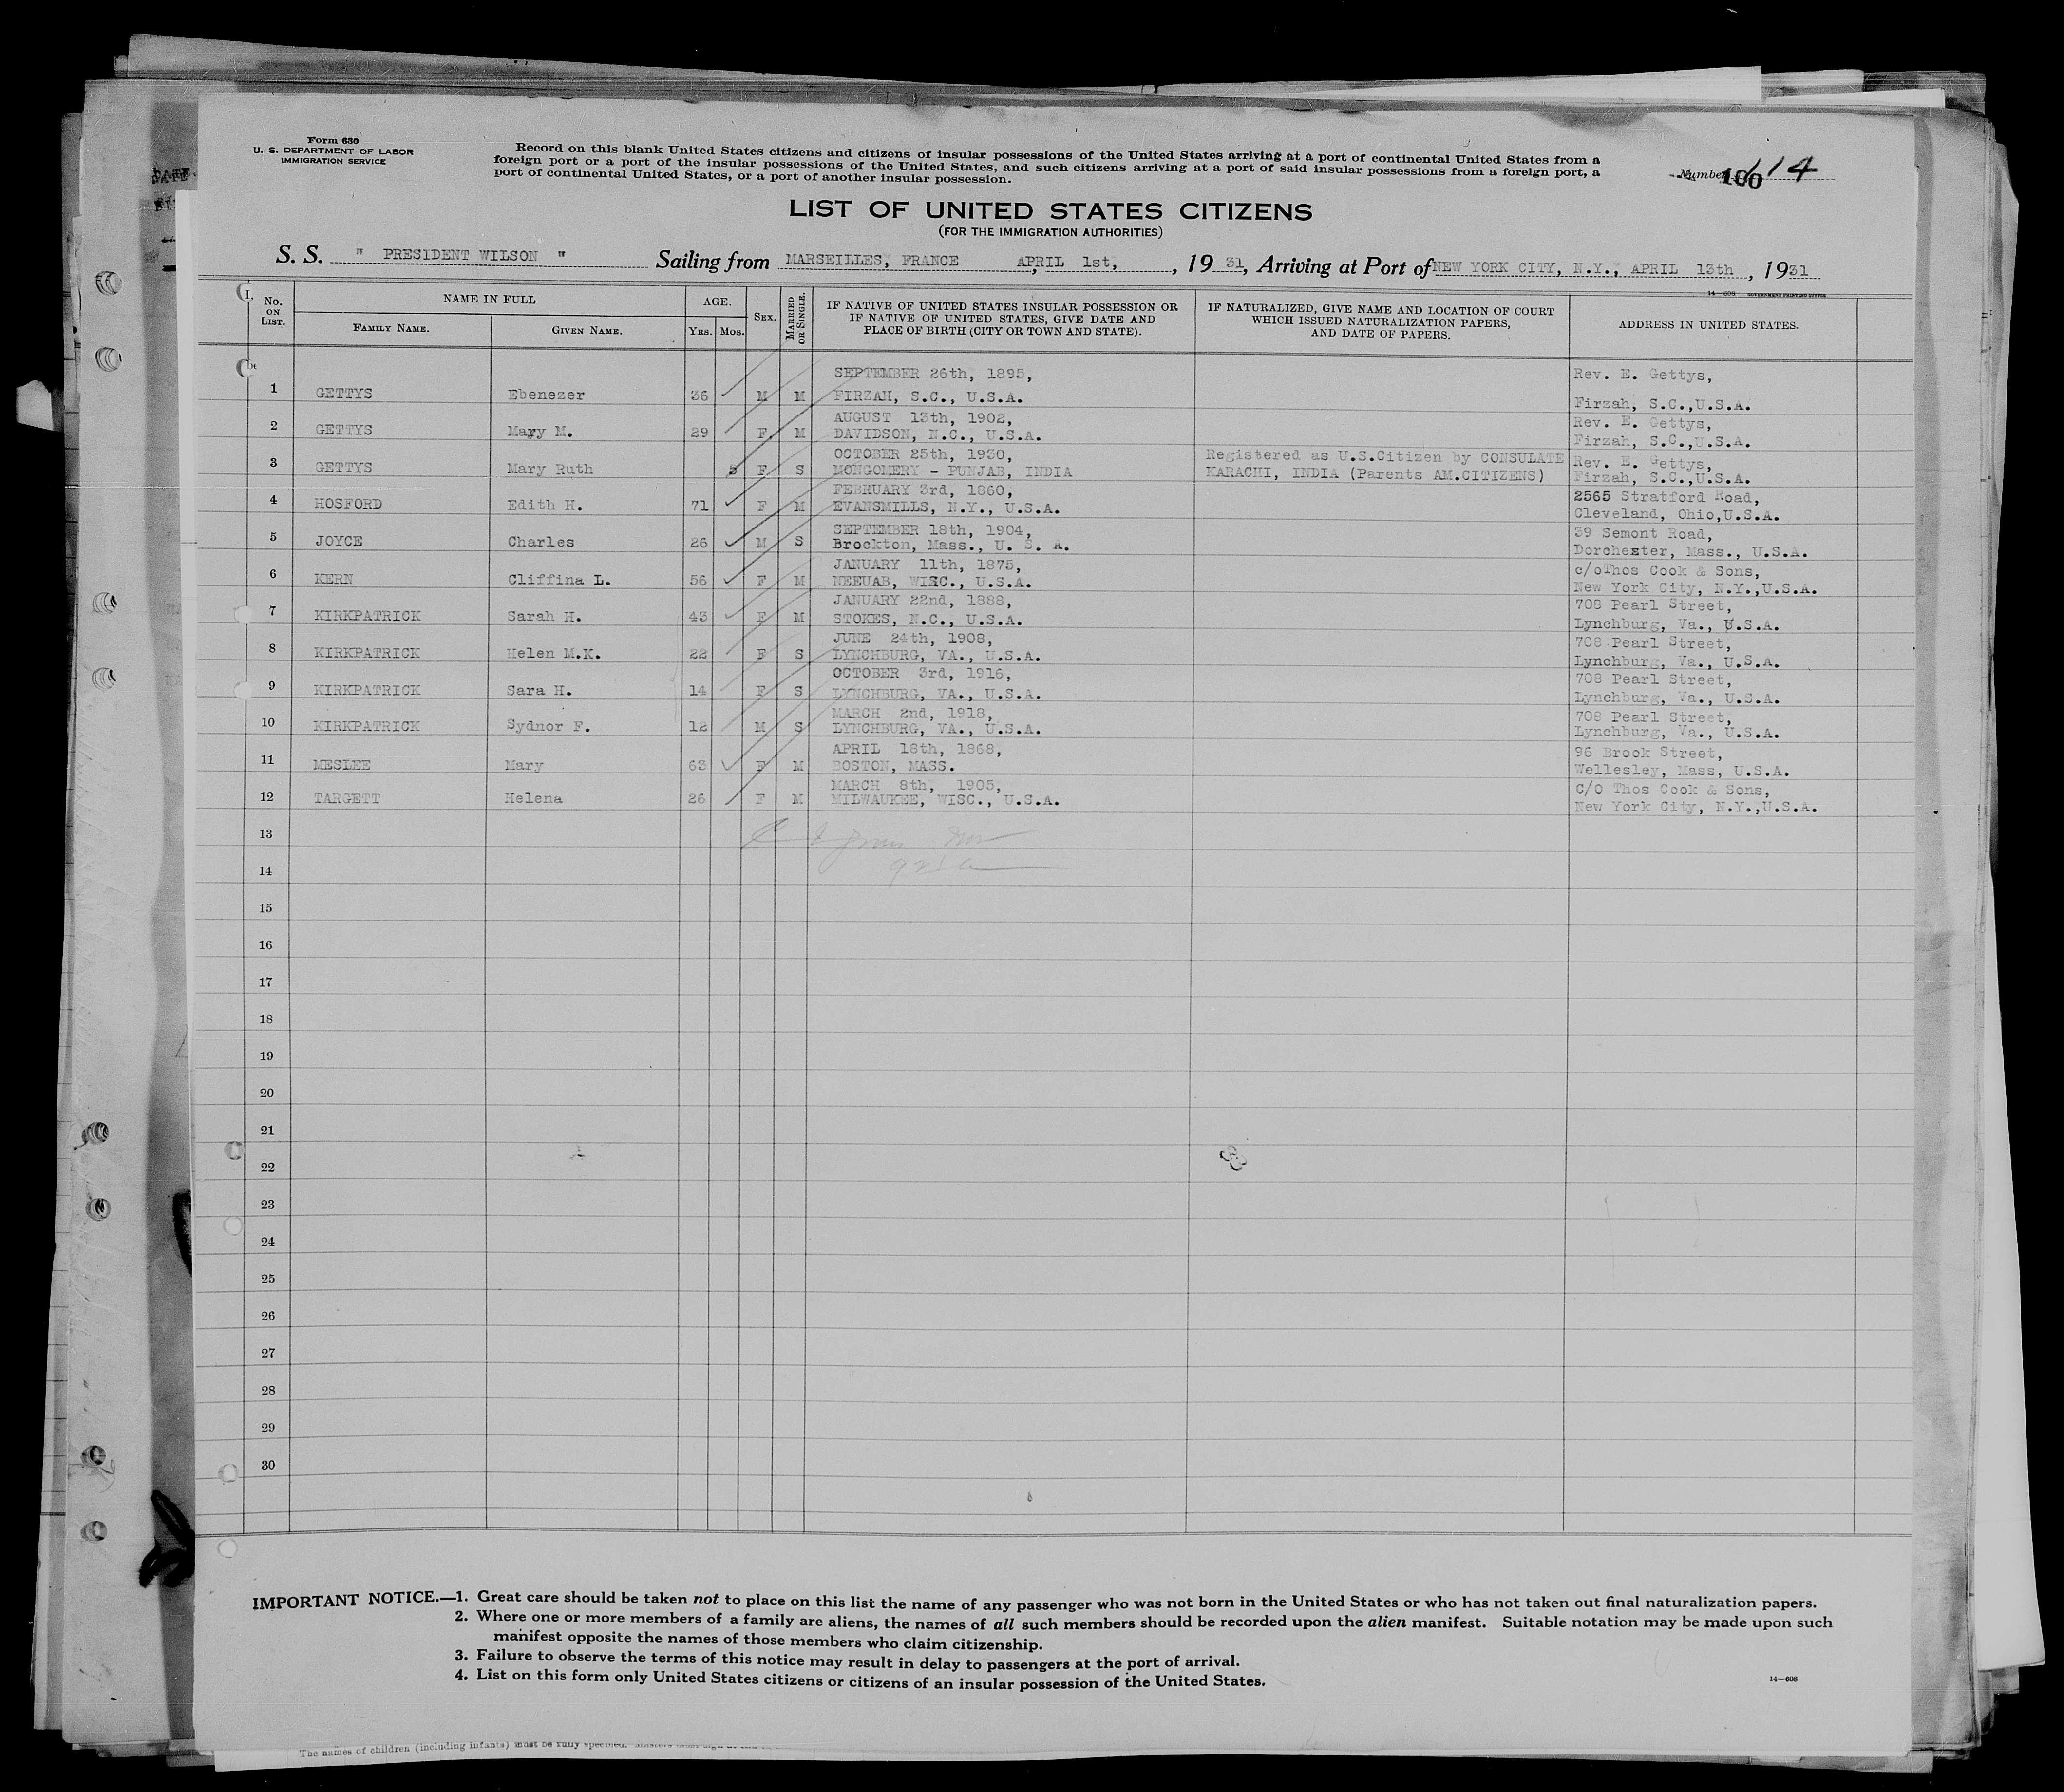 Form 630
U. S. DEPARTMENT OF LABOR
IMMIGRATION SERVICE
Record on this blank United States citizens and citizens of insular possessions of the United States arriving at a port of continental United States from a
foreign port or a port of the insular possessions of the United States, and such citizens arriving at a port of said insular possessions from a foreign port, a
port of continental United States, or a port of another insular possession.
Number 114
LIST OF UNITED STATES CITIZENS
(FOR THE IMMIGRATION AUTHORITIES)
S. S. " PRESIDENT WILSON " Sailing from MARSEILLES, FRANCE APRIL 1st, , 19 31, Arriving at Port of NEW YORK CITY, N.Y., APRIL 13th , 1931
14—608 GOVERNMENT PRINTING OFFICE
No. ON LIST. NAME IN FULL AGE. SEX. MARRIED OR SINGLE. IF NATIVE OF UNITED STATES INSULAR POSSESSION OR IF NATIVE OF UNITED STATES, GIVE DATE AND PLACE OF BIRTH (CITY OR TOWN AND STATE). IF NATURALIZED, GIVE NAME AND LOCATION OF COURT WHICH ISSUED NATURALIZATION PAPERS, AND DATE OF PAPERS. ADDRESS IN UNITED STATES.
FAMILY NAME. GIVEN NAME. YRS. MOS.
SEPTEMBER 26th, 1895, Rev. E. Gettys,
1 GETTYS Ebenezer 36 M M FIRZAH, S.C., U.S.A. Firzah, S.C.,U.S.A.
AUGUST 13th, 1902, Rev. E. Gettys,
2 GETTYS Mary M. 29 F M DAVIDSON, N.C., U.S.A. Firzah, S.C.,U.S.A.
OCTOBER 25th, 1930, Registered as U.S.Citizen by CONSULATE Rev. E. Gettys,
3 GETTYS Mary Ruth 5 F S MONGOMERY - PUNJAB, INDIA KARACHI, INDIA (Parents AM.CITIZENS) Firzah, S.C.,U.S.A.
FEBRUARY 3rd, 1860, 2565 Stratford Road,
4 HOSFORD Edith H. 71 F M EVANSMILLS, N.Y., U.S.A. Cleveland, Ohio,U.S.A.
SEPTEMBER 18th, 1904, 39 Semont Road,
5 JOYCE Charles 26 M S Brockton, Mass., U. S. A. Dorchester, Mass., U.S.A.
JANUARY 11th, 1875, c/oThos Cook & Sons,
6 KERN Cliffina L. 56 F M NEEUAB, WISC., U.S.A. New York City, N.Y.,U.S.A.
JANUARY 22nd, 1888, 708 Pearl Street,
7 KIRKPATRICK Sarah H. 43 F M STOKES, N.C., U.S.A. Lynchburg, Va., U.S.A.
JUNE 24th, 1908, 708 Pearl Street,
8 KIRKPATRICK Helen M.K. 22 F S LYNCHBURG, VA., U.S.A. Lynchburg, Va., U.S.A.
OCTOBER 3rd, 1916, 708 Pearl Street,
9 KIRKPATRICK Sara H. 14 F S LYNCHBURG, VA., U.S.A. Lynchburg, Va., U.S.A.
MARCH 2nd, 1918, 708 Pearl Street,
10 KIRKPATRICK Sydnor F. 12 M S LYNCHBURG, VA., U.S.A. Lynchburg, Va., U.S.A.
APRIL 18th, 1868, 96 Brook Street,
11 MESLEE Mary 63 F M BOSTON, MASS. Wellesley, Mass, U.S.A.
MARCH 8th, 1905, C/O Thos Cook & Sons,
12 TARGETT Helena 26 F M MILWAUKEE, WISC., U.S.A. New York City, N.Y.,U.S.A.
13
14
15
16
17
18
19
20
21
22
23
24
25
26
27
28
29
30
IMPORTANT NOTICE.—1. Great care should be taken not to place on this list the name of any passenger who was not born in the United States or who has not taken out final naturalization papers.
2. Where one or more members of a family are aliens, the names of all such members should be recorded upon the alien manifest. Suitable notation may be made upon such
manifest opposite the names of those members who claim citizenship.
3. Failure to observe the terms of this notice may result in delay to passengers at the port of arrival.
4. List on this form only United States citizens or citizens of an insular possession of the United States.
14—608
The names of children (including infants) must be fully specified.